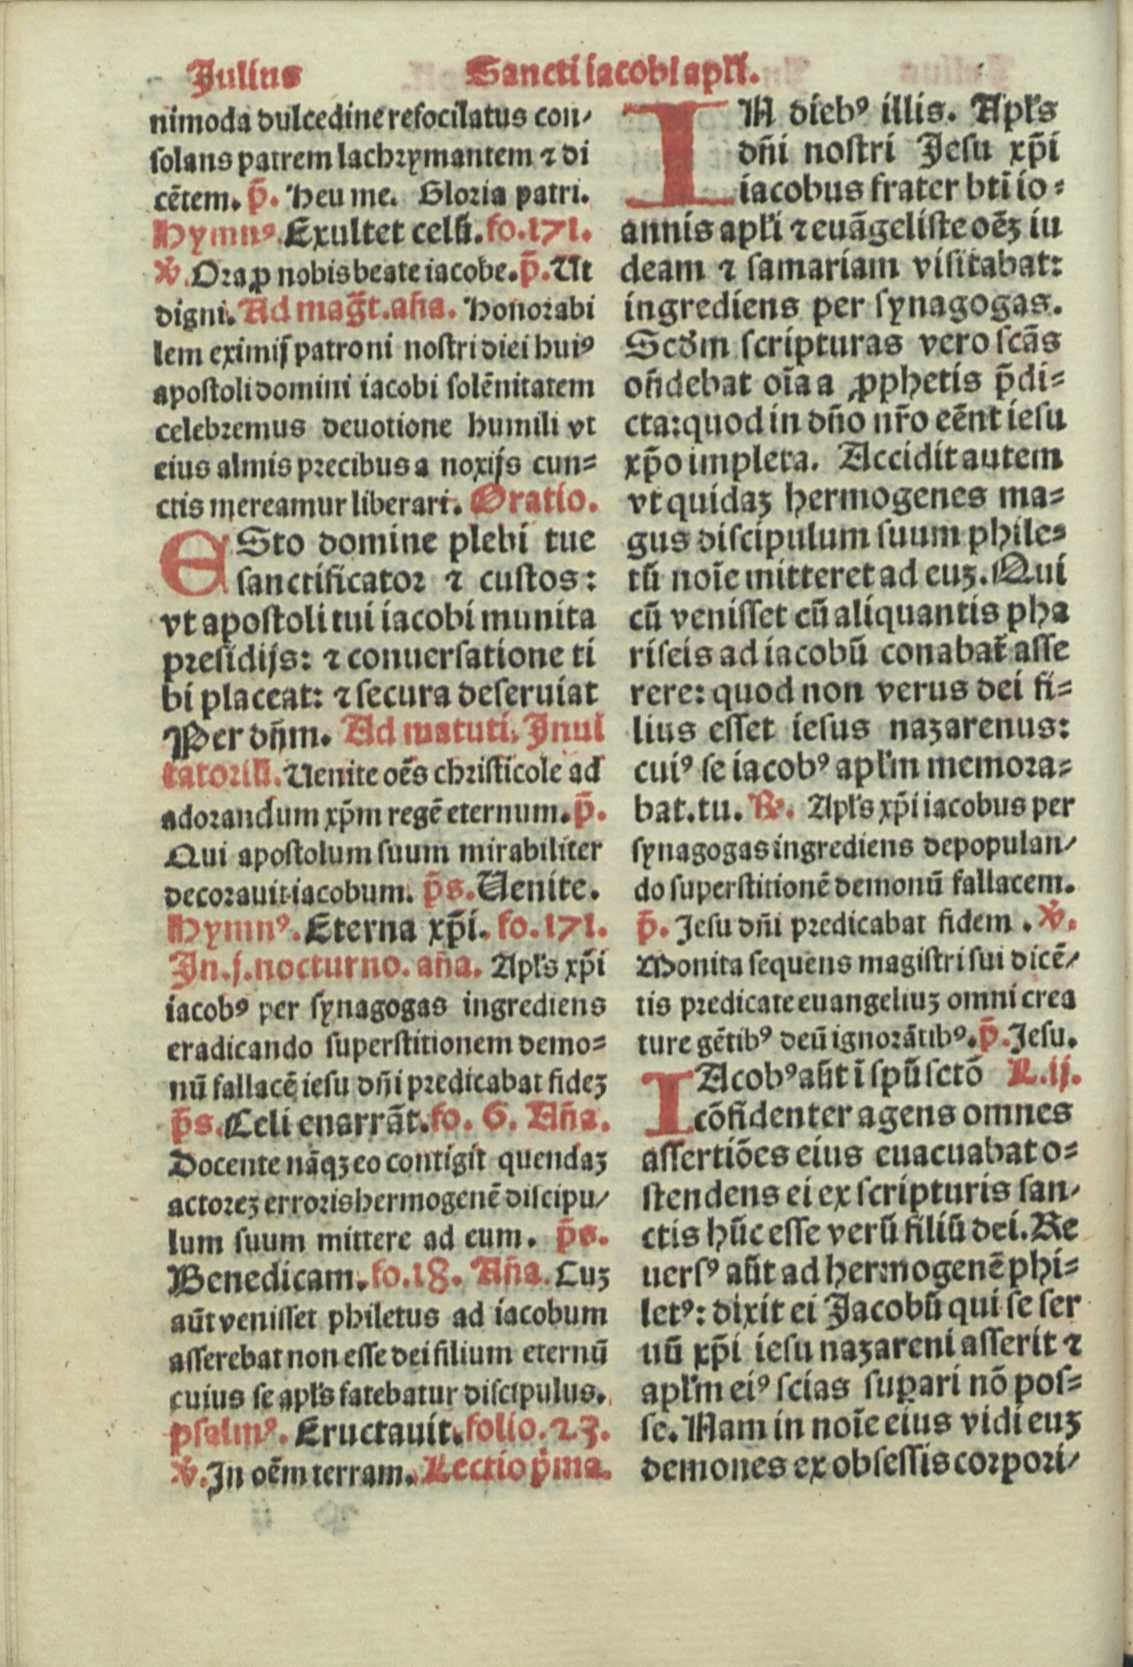 Julius Sancti iacobi apl'i.
nimoda dulcedine refocilatus con⸗
solans patrem lachrymantem ⁊ di
cētem. p̄. Heu me. Gloria patri.
Hymnꝰ. Exultet celū. fo. 171.
℣. Ora ꝓ nobis beate iacobe. p̄. Ut
digni. Ad mag̅t. an̄a. Honorabi
lem eximij patroni nostri diei huiꝰ
apostoli domini iacobi solēnitatem
celebremus deuotione humili vt
eius almis precibus a noxijs cun⸗
ctis mereamur liberari. Oratio.
ESto domine plebi tue
sanctificator ⁊ custos:
vt apostoli tui iacobi munita
presidijs: ⁊ conuersatione ti
bi placeat: ⁊ secura deseruiat
Per dn̄m. Ad matuti. Inui
tatoriū. Uenite oēs christicole ad
adorandum xp̄m regē eternum. p̄.
Qui apostolum suum mirabiliter
decorauit iacobum. p̄s. Uenite.
Hymnꝰ. Eterna xp̄i. fo. 171.
In .j. nocturno. an̄a. Apl's xp̄i
iacobꝰ per synagogas ingrediens
eradicando superstitionem demo⸗
nū fallacē iesu dn̄i predicabat fideꝫ
p̄s. Celi enarrāt. fo. 6. An̄a.
Docente nāqꝫ eo contigit quendaꝫ
actoreꝫ erroris hermogenē discipu⸗
lum suum mittere ad eum. p̄s.
Benedicam. fo. 18. An̄a. Cuꝫ
aūt venisset philetus ad iacobum
asserebat non esse dei filium eternū
cuius se apl's fatebatur discipulus.
psalmꝰ. Eructauit. folio. 23.
℣. In oēm terram. Lectio p̄ma.
IN diebꝰ illis. Apl's
dn̄i nostri Jesu xp̄i
iacobus frater bt̄i io⸗
annis apl'i ⁊ euāgeliste oēꝫ iu
deam ⁊ samariam visitabat:
ingrediens per synagogas.
Scd'm scripturas vero scās
on̄debat oīa a ꝓphetis p̄di⸗
cta: quod in dn̄o nr̄o eēnt iesu
xp̄o impleta. Accidit autem
vt quidaꝫ hermogenes ma⸗
gus discipulum suum phile⸗
tū noīe mitteret ad euꝫ. Qui
cū venisset cū aliquantis pha
riseis ad iacobū conabat̄ asse
rere: quod non verus dei fi⸗
lius esset iesus nazarenus:
cuiꝰ se iacobꝰ apl'm memora⸗
bat. tu. ℟. Apl's xp̄i iacobus per
synagogas ingrediens depopulan⸗
do superstitionē demonū fallacem.
p̄. Jesu dn̄i predicabat fidem. ℣.
Monita sequens magistri sui dicē⸗
tis predicate euangeliuꝫ omni crea
ture gētibꝰ deū ignorātibꝰ. p̄. Jesu.
IAcobꝰ aūt ī spū sctō L. ij.
cōfidenter agens omnes
assertiōes eius euacuabat o⸗
stendens ei ex scripturis san⸗
ctis hūc esse verū filiū dei. Re
uersꝰ aūt ad hermogenē phi⸗
letꝰ: dixit ei Jacobū qui se ser
uū xp̄i iesu nazareni asserit ⁊
apl'm eiꝰ scias suꝑari nō pos⸗
se. Nam in noīe eius vidi euꝫ
demones ex obsessis corpori⸗